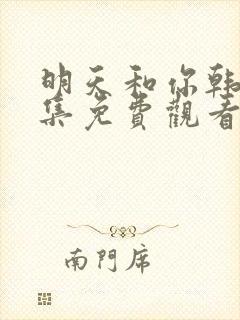 明天和你韩
集免費觀看
南門席